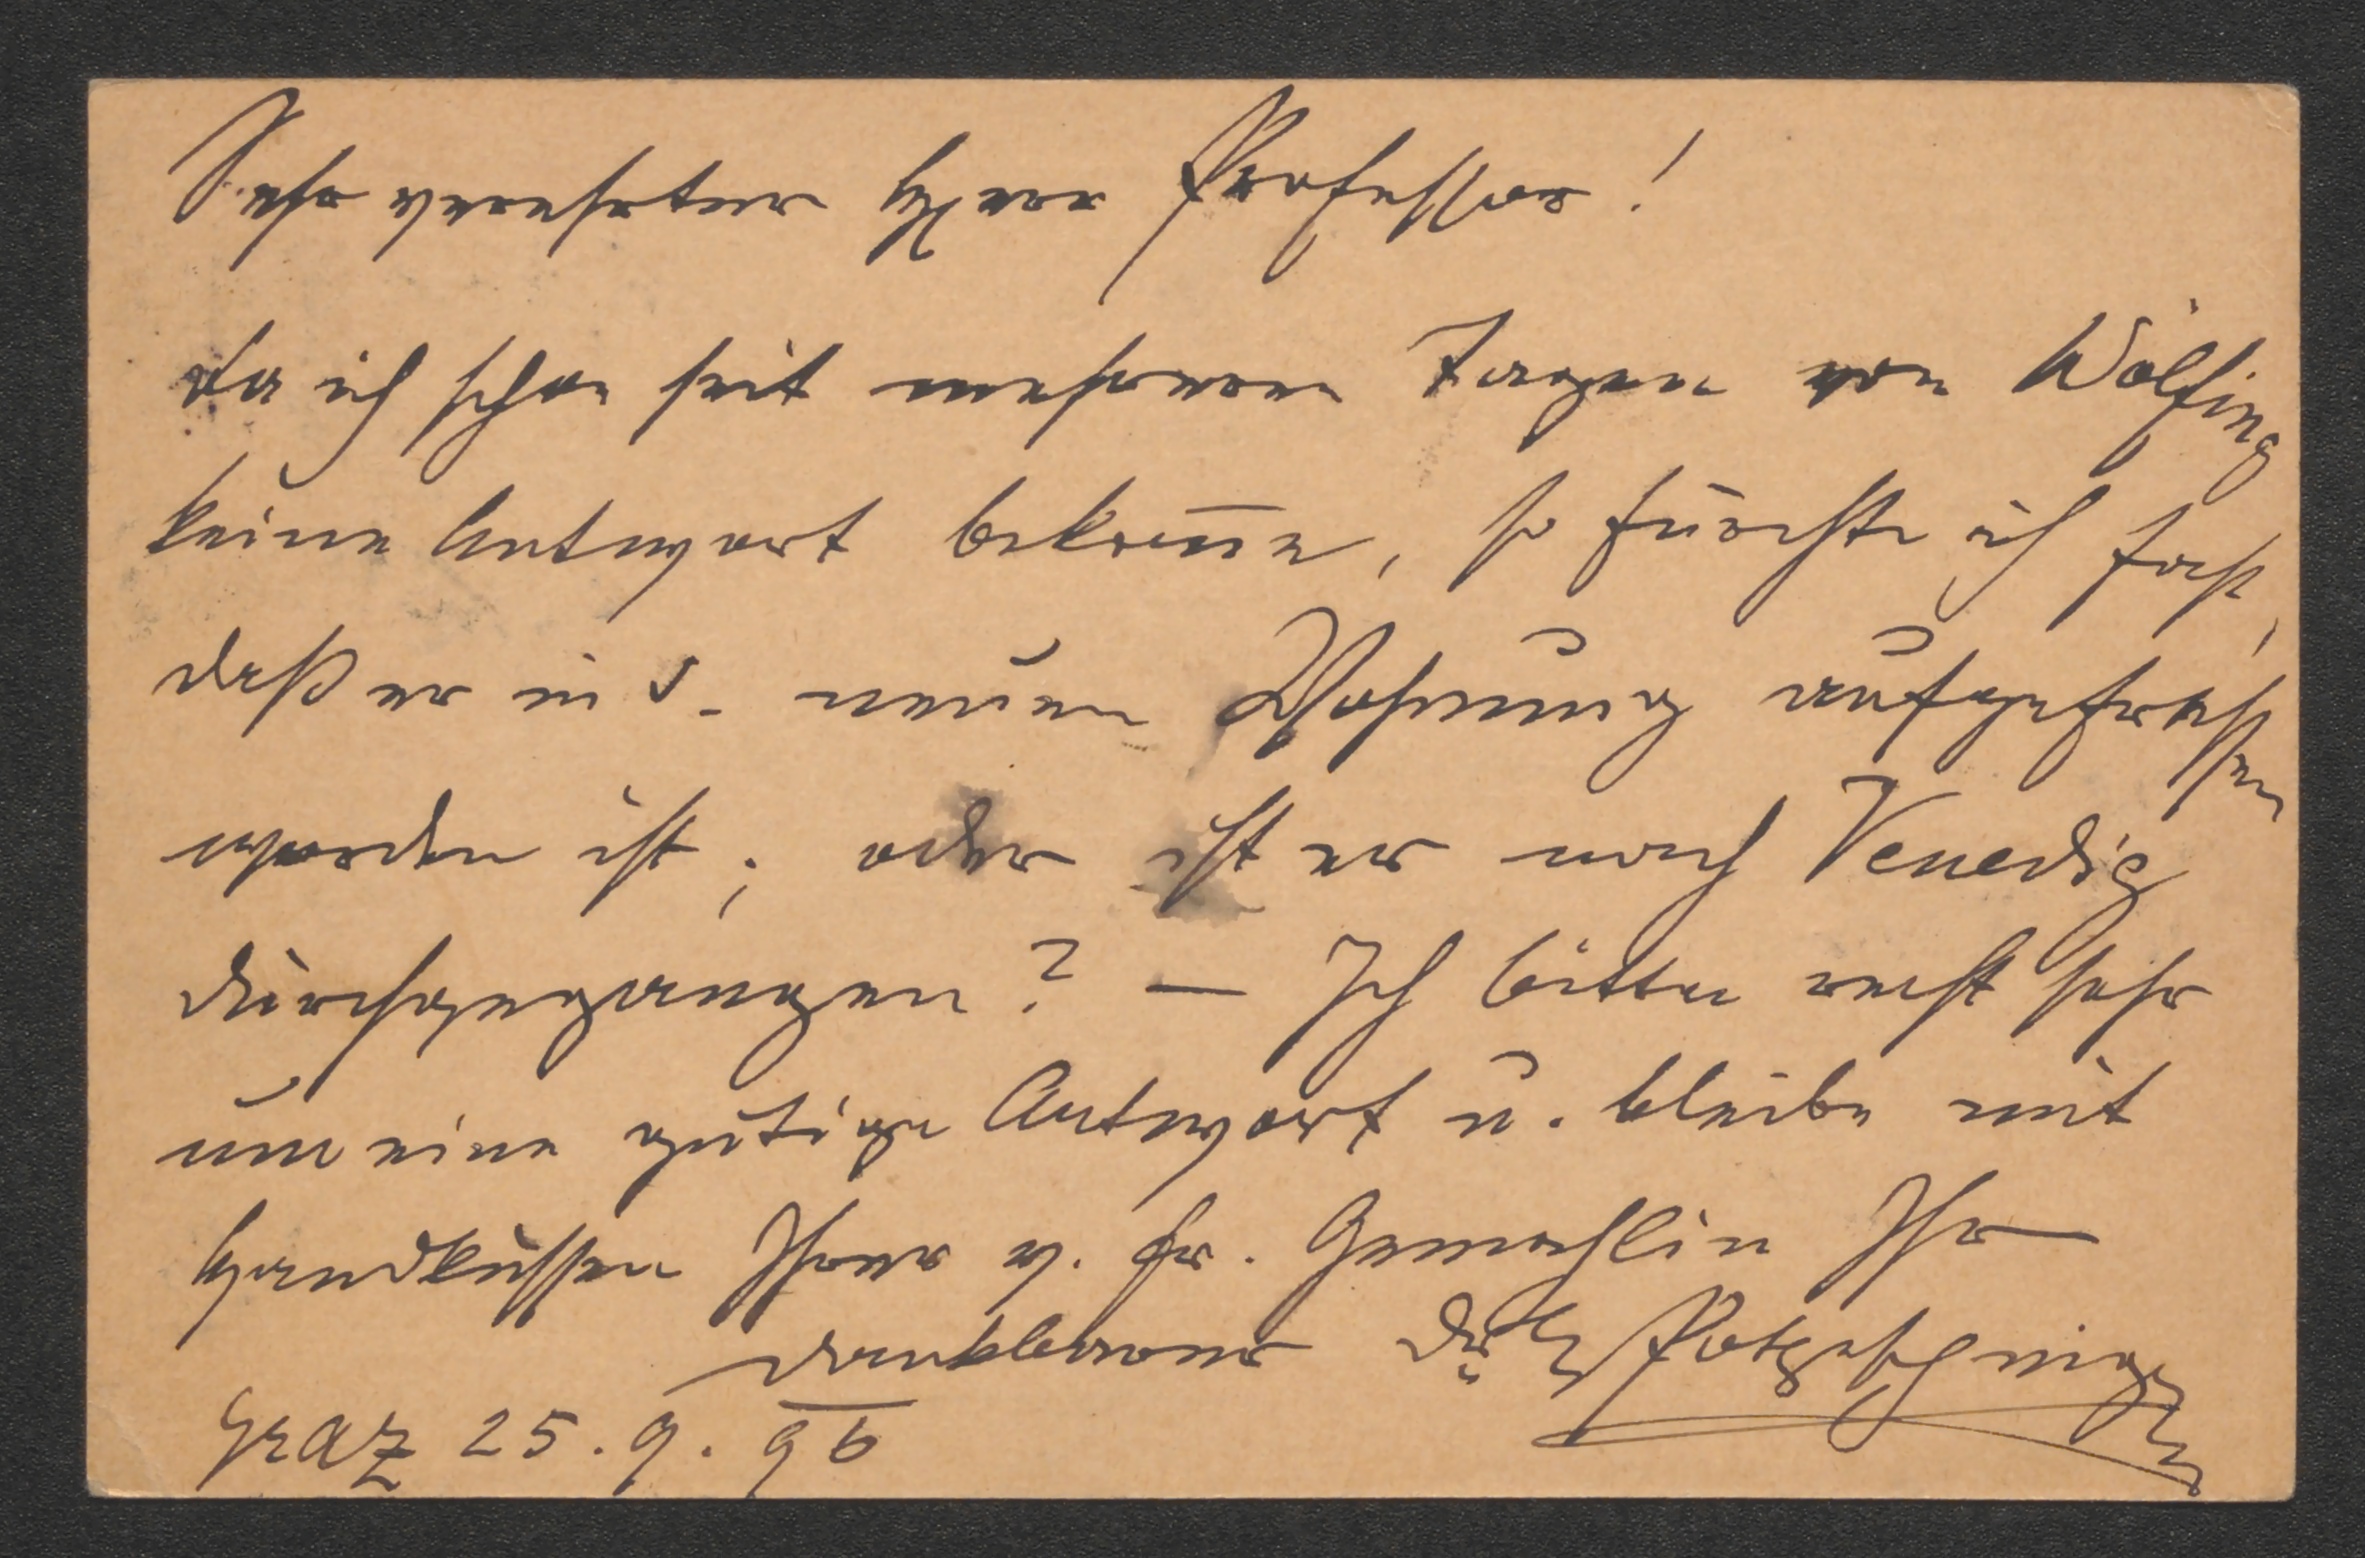 Sehr verehrter Herr Professor!
da ich schon seit mehreren Tagen von Wölfing
keine Antwort bekom̅e, so fürchte ich fast,
daß er in s. neuen Wohnung aufgefressen
worden ist; oder ist er nach Venedig
durchgegangen? — Ich bitte recht sehr
um eine gütige Antwort u. bleibe mit
Handküssen Ihrer v. Fr. Gemahlin Ihr
dankbarer Dr Potpeschnigg
Graz 25.9.96